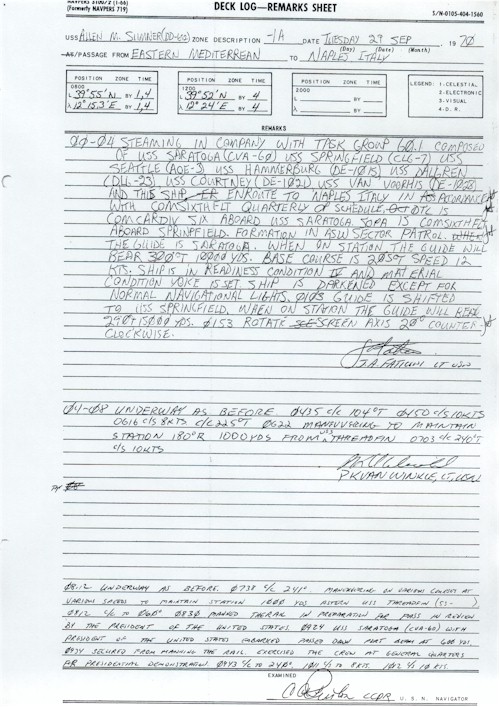 NAVPERS 3100/2 (1-66)
(Formerly NAVPERS 719)
DECK LOG—REMARKS SHEET
S/N-0105-404-1560
USS ALLEN M. SUMNER (DD-692) ZONE DESCRIPTION -1A DATE TUESDAY 29 SEP, 1970
(Day) (Date) (Month)
AT/PASSAGE FROM EASTERN MEDITERREAN TO NAPLES ITALY
POSITION ZONE TIME
0800
L 39°55'N BY 1,4
λ 12°15.3'E BY 1,4
POSITION ZONE TIME
1200
L 39°52'N BY 4
λ 12°24'E BY 4
POSITION ZONE TIME
2000
L BY
λ BY
LEGEND: 1-CELESTIAL
2-ELECTRONIC
3-VISUAL
4-D. R.
REMARKS
00-04 STEAMING IN COMPANY WITH TASK GROUP 60.1 COMPOSED
OF USS SARATOGA (CVA-60) USS SPRINGFIELD (CLG-7) USS
SEATTLE (AOE-3) USS HAMMERBURG (DE-1015) USS DAHLGREN
(DLG-23) USS COURTNEY (DE-1021) USS VAN VOORHIS (DE-1028)
AND THIS SHIP ENROUTE TO NAPLES ITALY IN ACCORDANCE
WITH COMSIXTHFLT QUARTERLY SCHEDULE. OTC IS
COMCARDIV SIX ABOARD USS SARATOGA SOPA IS COMSIXTHFLT
ABOARD SPRINGFIELD. FORMATION IN ASW SECTOR PATROL.
THE GUIDE IS SARATOGA. WHEN ON STATION THE GUIDE WILL
BEAR 300°T 10000 YDS. BASE COURSE IS 285°T SPEED 12
KTS. SHIP IS IN READINESS CONDITION IV AND MATERIAL
CONDITION YOKE IS SET. SHIP IS DARKENED EXCEPT FOR
NORMAL NAVIGATIONAL LIGHTS. 0105 GUIDE IS SHIFTED
TO USS SPRINGFIELD. WHEN ON STATION THE GUIDE WILL BEAR
290°T 15000 YDS. 0153 ROTATE SCREEN AXIS 20° COUNTER-
CLOCKWISE.
LT USN
04-08 UNDERWAY AS BEFORE 0435 c/c 104°T 0450 c/s 10 KTS
0616 c/s 8 KTS c/c 225°T 0622 MANEUVERING TO MAINTAIN
STATION 180°R 1000 YDS FROM USS THREADFIN 0703 c/c 240°T
c/s 10 KTS
P.K. VAN WINKLE, LT, USN
08-12 UNDERWAY AS BEFORE. 0738 c/c 241° MANEUVERING ON VARIOUS COURSES AT
VARIOUS SPEEDS TO MAINTAIN STATION 1000 YDS ASTERN USS THREADFIN (SS- )
0812 c/c TO 060° 0830 MANNED THE RAIL IN PREPARATION FOR PASS IN REVIEW
BY THE PRESIDENT OF THE UNITED STATES. 0924 USS SARATOGA (CVA-60) WITH
PRESIDENT OF THE UNITED STATES EMBARKED PASSED DOWN PORT BEAM AT 600 YDS.
0934 SECURED FROM MANNING THE RAIL. EXERCISED THE CREW AT GENERAL QUARTERS
FOR PRESIDENTIAL DEMONSTRATION 0943 c/c TO 240°. 1011 c/s TO 8 KTS. 1012 c/s 10 KTS.
EXAMINED
LCDR U. S. N. NAVIGATOR